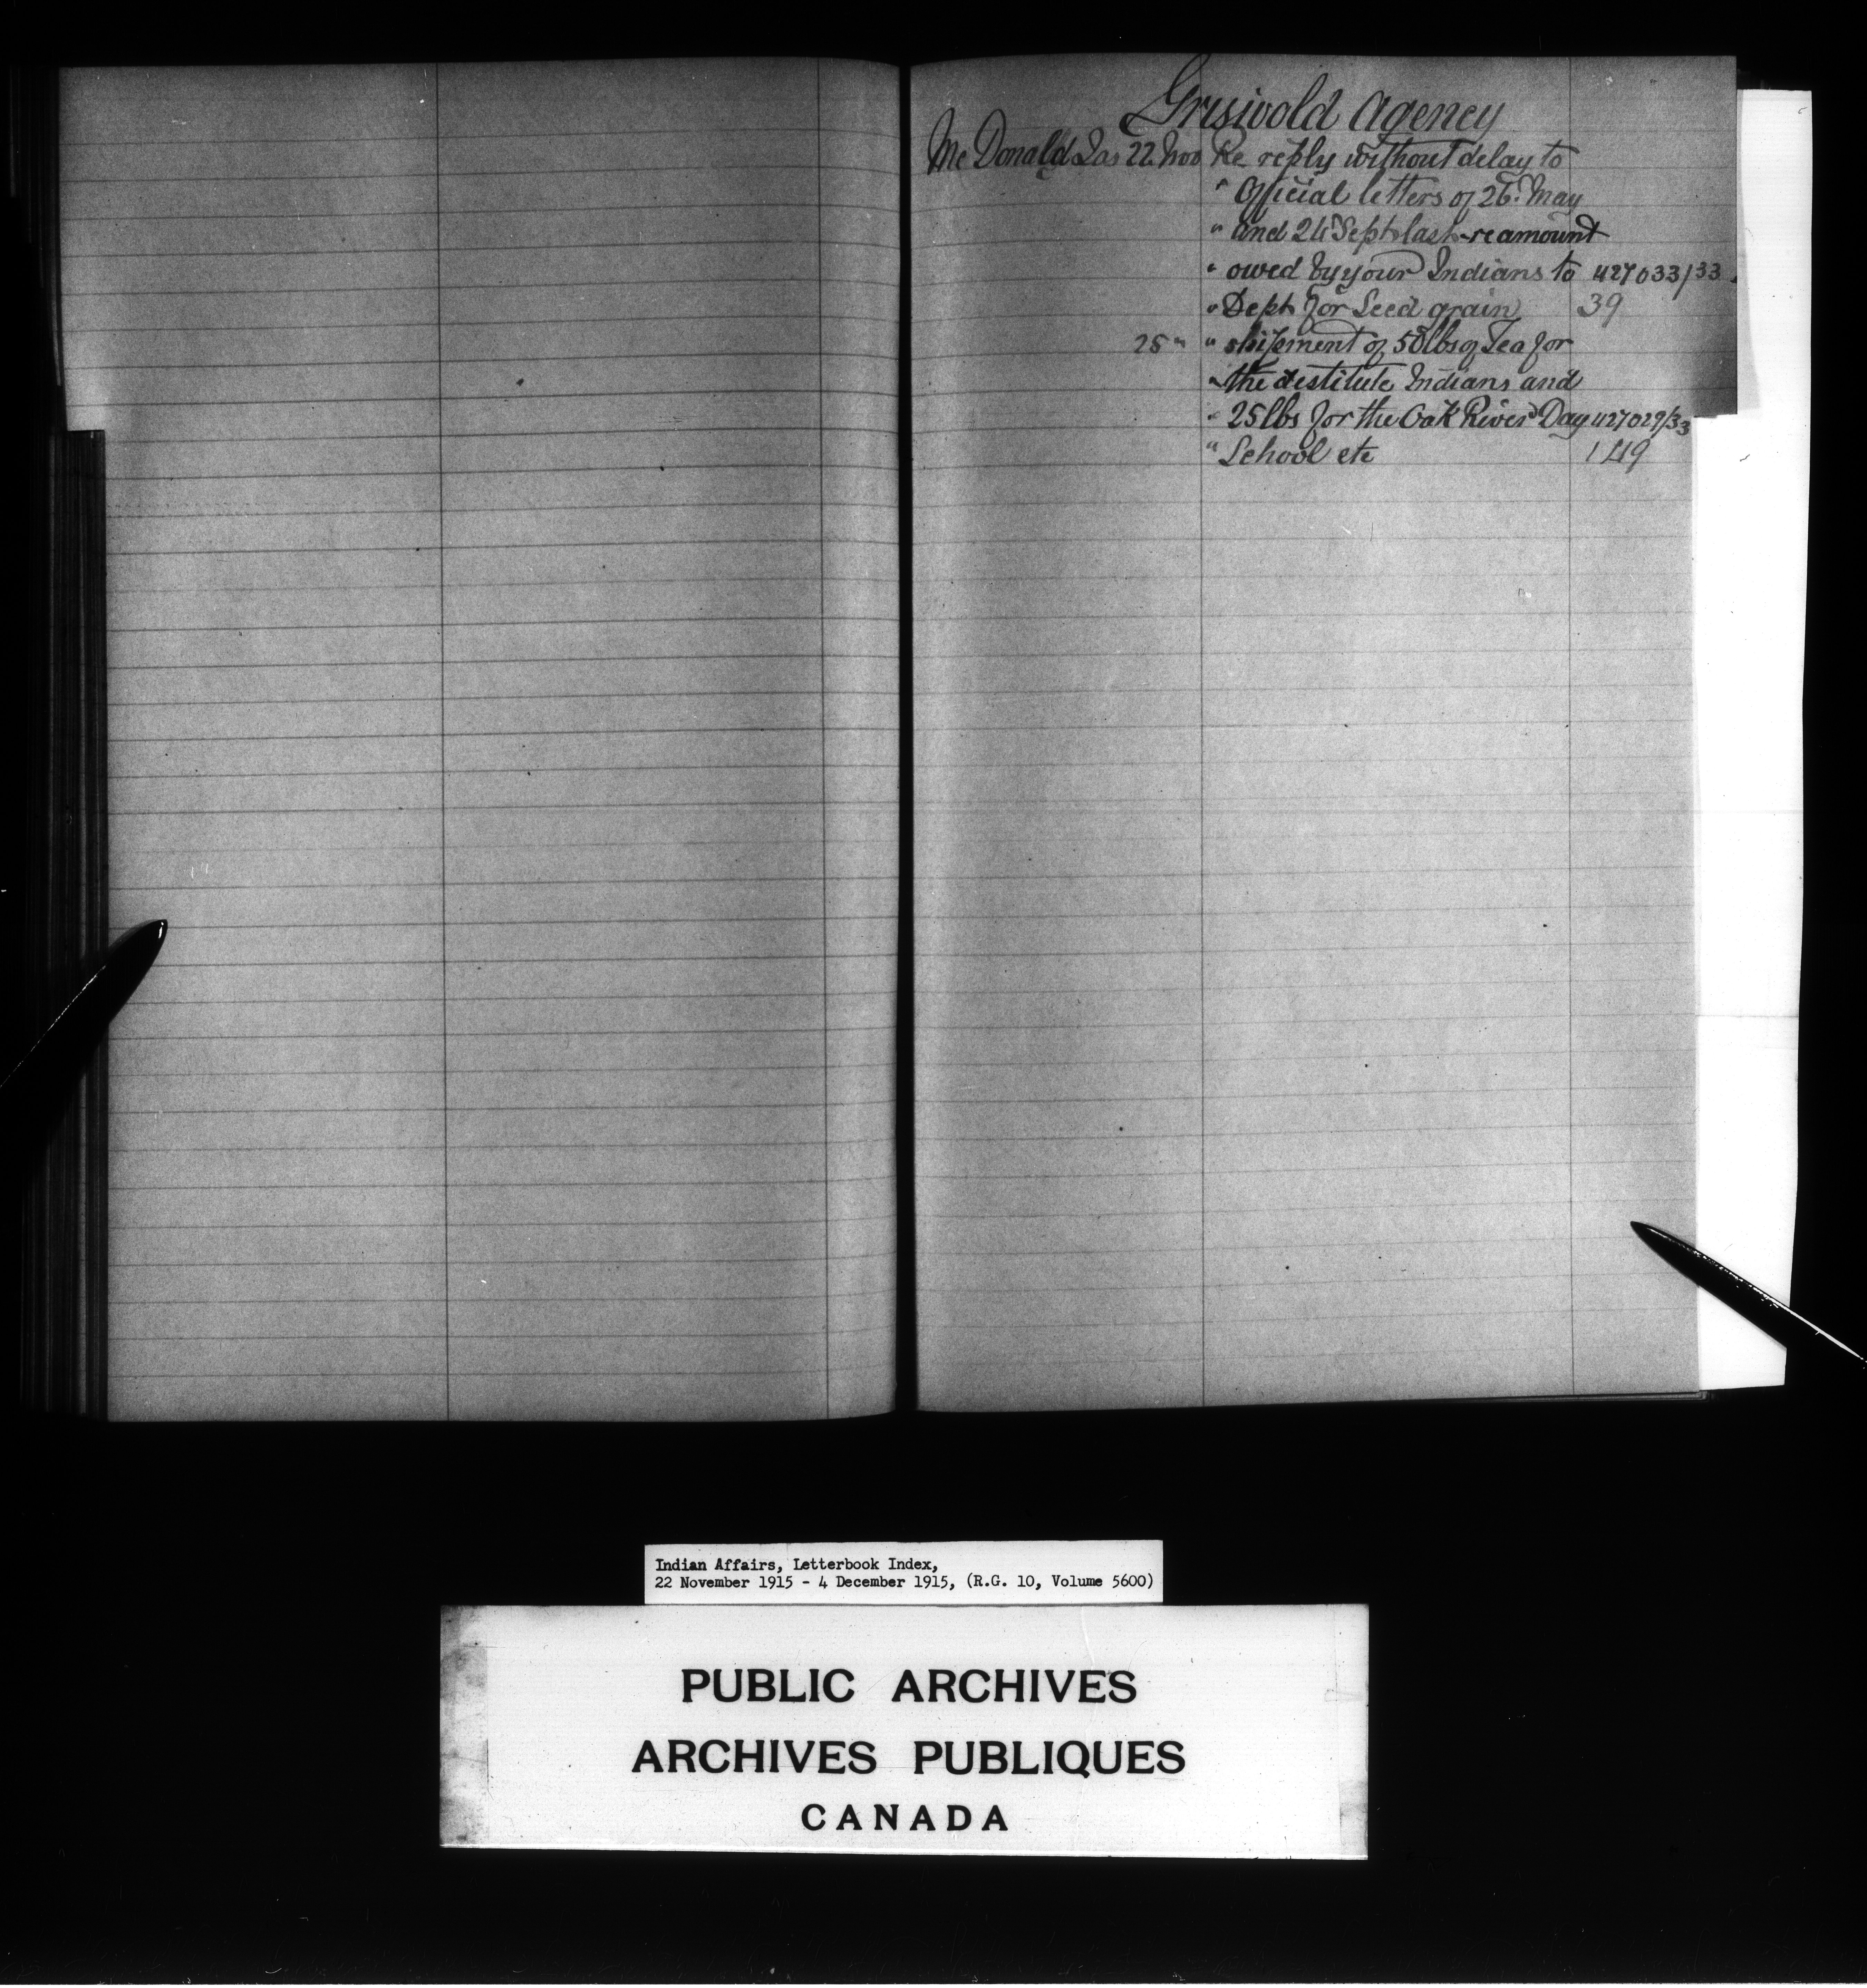 Griswold Agency
Mc Donald Jas 22 Nov Re reply without delay to
" Official letters of 26. May
" and 24 Sept last re amount
" owed by your Indians to 427033/33
" Dept for Seed grain 39
25 " " shipment of 50 lbs of Tea for
" the destitute Indians and
" 25 lbs for the Oak River Day 427029/33
" School etc 1419
Indian Affairs, Letterbook Index,
22 November 1915 - 4 December 1915, (R.G. 10, Volume 5600)
PUBLIC ARCHIVES
ARCHIVES PUBLIQUES
CANADA